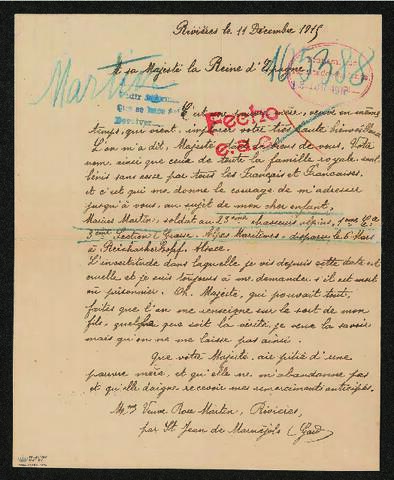 Rivières le 11 Décembre 1915
A sa Majesté la Reine d'Espagne
Martin
165388
C'est une pauvre mère, veuve en même
temps, qui vient implorer votre très haute bienveillance
L'on m'a dit, Majesté, de vous. Votre
nom, ainsi que ceux de toute la famille royale, sont
bénis sans cesse par tous les Français et Françaises,
et c'est qui me donne le courage de m'adresser
jusqu'à vous, au sujet de mon cher enfant,
Marius Martin, soldat au 23ème chasseurs alpins, 1ère Cie
3ème Section à Grasse. Alpes Maritimes, disparu le 6 Mars
à Reichackerkopf. Alsace.
L'incertitude dans laquelle je vis depuis cette date est
cruelle et je suis toujours à me demander s'il est mort
ou prisonnier. Oh. Majesté, qui pouvait tout,
faites que l'on me renseigne sur le sort de mon
fils, quelque que soit la vérité, je veux la savoir
mais qu'on ne me laisse pas ainsi.
Que votre Majesté aie pitié d'une
pauvre mère, et qu'elle ne m'abandonne pas
et qu'elle daigne recevoir mes remerciments anticipés.
Mme Veuve Martin, Rivières,
par St Jean de Maruéjols (Gard)
Fecho
e.a.c.